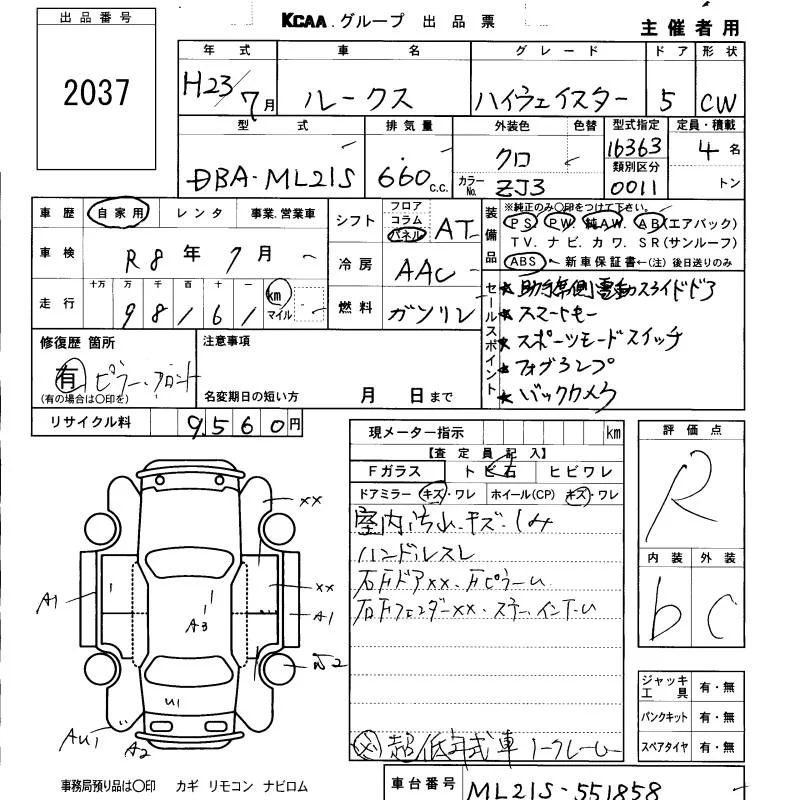 出品番号
2037
KCAA グループ 出品票
主催者用
年式 車名 グレード ドア 形状
H23/7月 ルークス ハイウェイスター 5 CW
型式 排気量 外装色 色替 型式指定 定員・積載
DBA-ML21S 660c.c. クロ 16363 4名
カラーNo. ZJ3 類別区分 0011 トン
車歴 自家用 レンタ 事業.営業車
車検 R8年7月
走行 十万 万 千 百 十 一 km マイル
98161
シフト フロア コラム パネル AT
冷房 AAC
燃料 ガソリン
装備品
※純正のみ〇印をつけて下さい。
PS. PW. 純AW. AB(エアバック)
TV. ナビ. カワ. SR(サンルーフ)
ABS 新車保証書←(注)後日送りのみ
セールスポイント
★助手席側電動スライドドア
★スマートキー
★スポーツモードスイッチ
★フォグランプ
★バックカメラ
修復歴 箇所
有 ピラー、フロント
(有の場合は〇印を)
注意事項
名変期日の短い方 月 日まで
リサイクル料 9560円
現メーター指示 km
【査定員記入】
Fガラス トビ石 ヒビワレ
ドアミラー キズ・ワレ ホイール(CP) キズ・ワレ
室内汚れ・キズ・シミ
ハンドルスレ
右Fドアxx・FピラーU
右Fフェンダーxx・ステー、インナーU
超低年式車 ノークレーム
評価点
R
内装 外装
b C
ジャッキ工具 有・無
パンクキット 有・無
スペアタイヤ 有・無
xx
xx
A1
A1
A3
U1
AU1
A2
事務局預り品は〇印 カギ リモコン ナビロム
車台番号 ML21S-551858